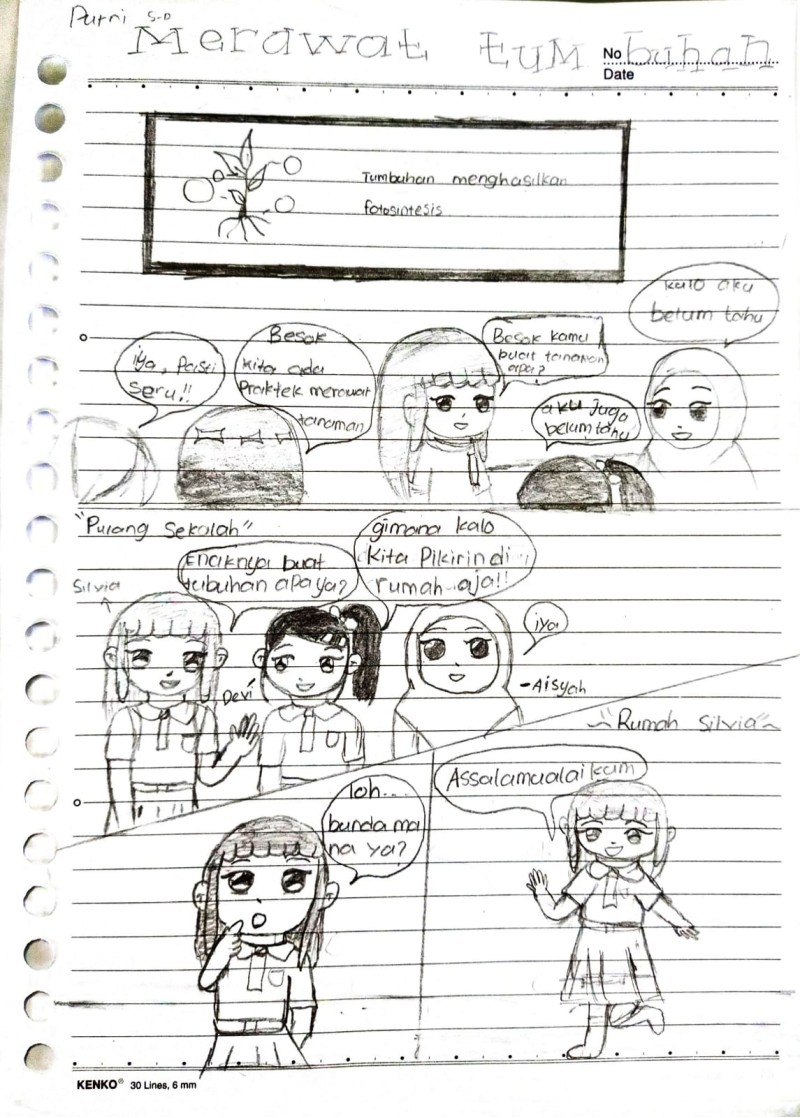 Putri 5-D
Merawat tUM buhan
No
Date
Tumbuhan menghasilkan
fotosintesis
iya, Pasti
seru!!
Besok
kita ada
Praktek merawat
tanaman
Besok kamu
buat tanaman
apa?
aku juga
belum tahu
kalo aku
belum tahu
"Pulang Sekolah"
Silvia
Enaknya buat
tubuhan apa ya?
gimana kalo
Kita Pikirin di
rumah aja!!
Devi
iya
-Aisyah
~"Rumah Silvia"~
loh...
bunda ma
na ya?
Assalamualaikum
KENKO® 30 Lines, 6 mm